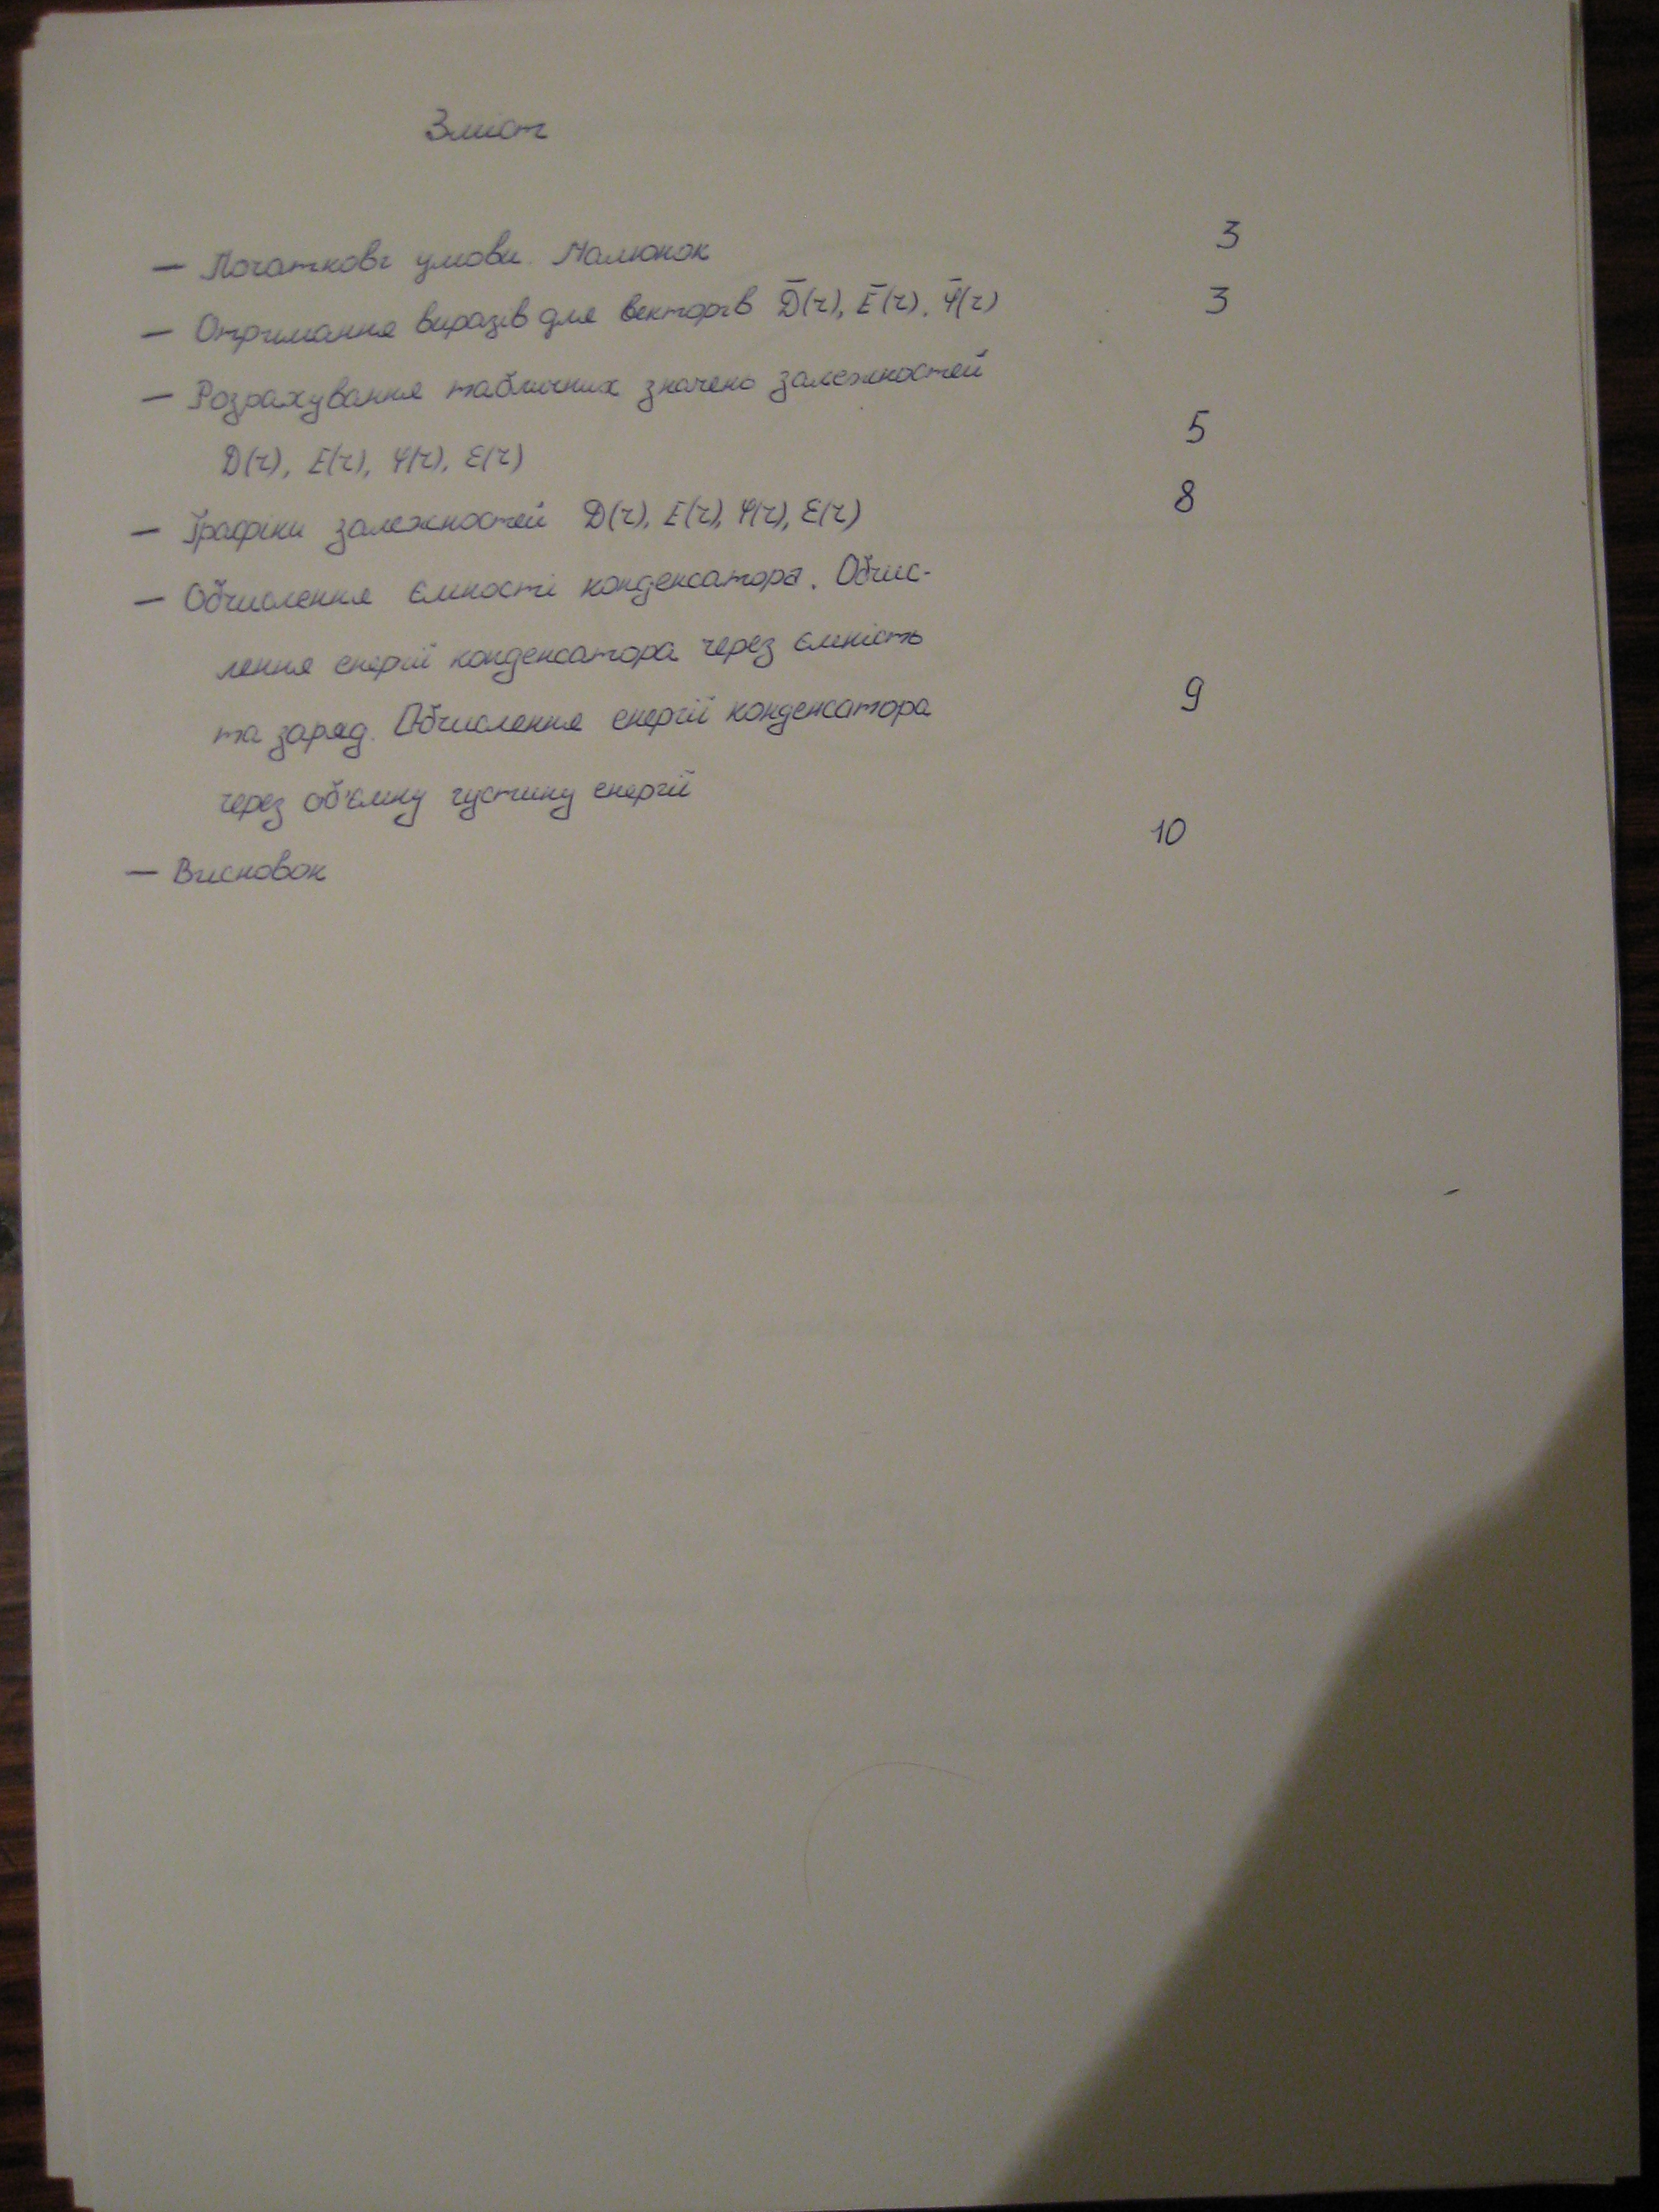 Зміст
— Початкові умови. Малюнок 3
— Отримання виразів для векторів D̄(r), Ē(r), φ̄(r) 3
— Розрахування табличних значень залежностей
D(r), E(r), φ(r), ε(r) 5
— Графіки залежностей D(r), E(r), φ(r), ε(r) 8
— Обчислення ємності конденсатора. Обчис-
лення енергії конденсатора через ємність
та заряд. Обчислення енергії конденсатора 9
через об'ємну густину енергії
— Висновок 10